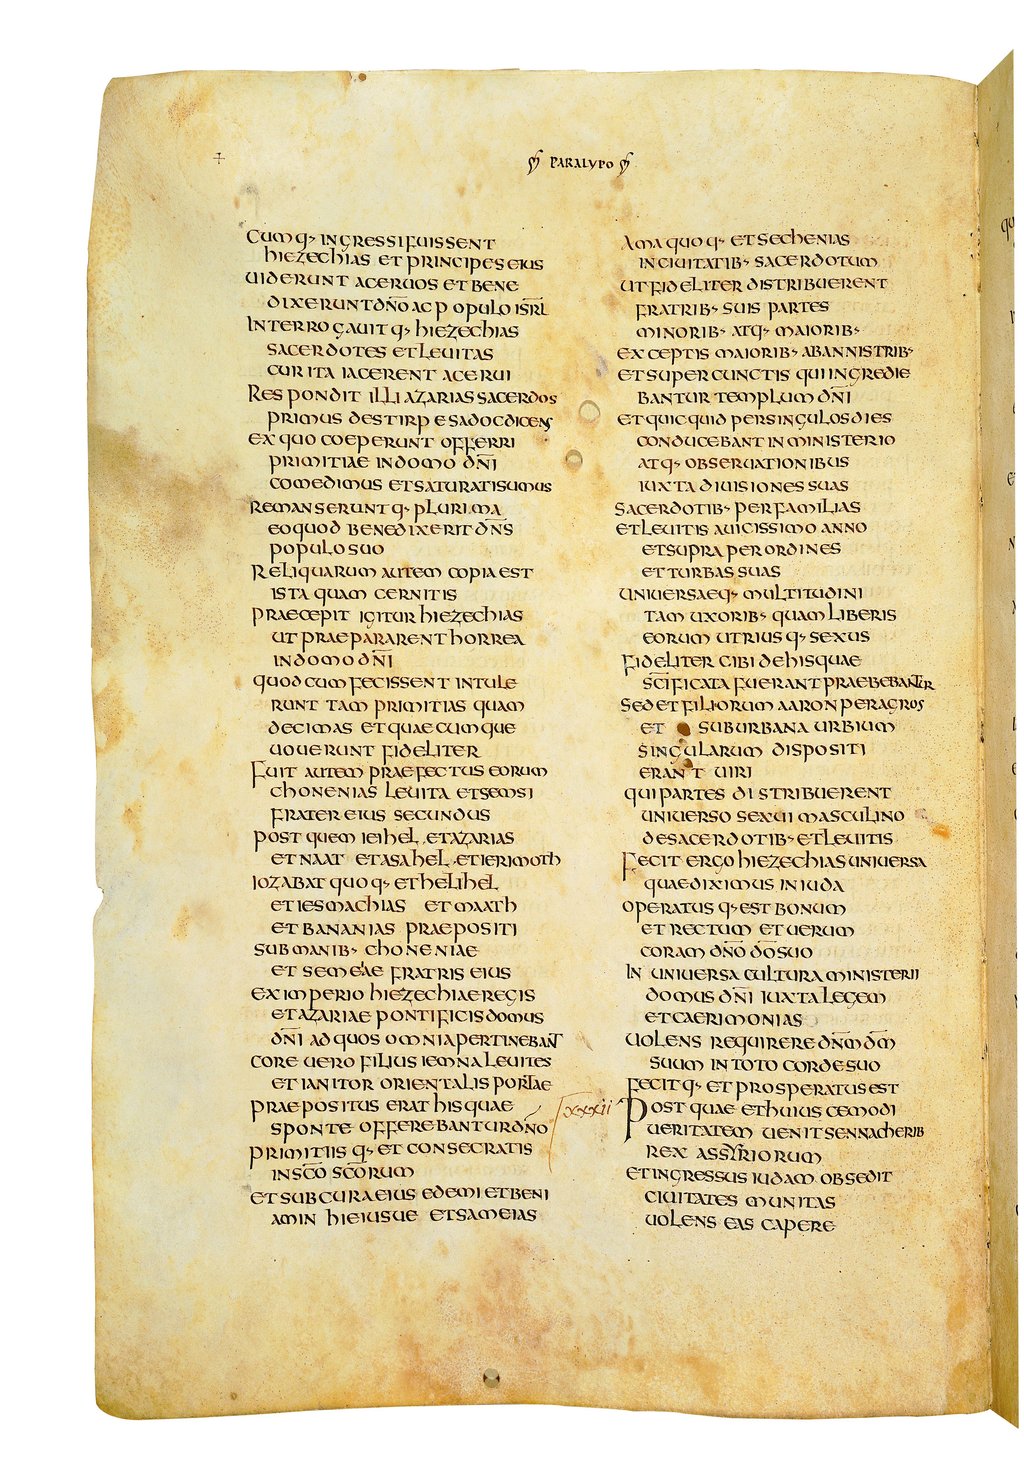 PARALYPO
Cumq; ingressi fuissent
hiezechias et principes eius
uiderunt aceruos et bene
dixerunt dn̄o ac populo isr̄l
Interrogauitq; hiezechias
sacerdotes et leuitas
cur ita iacerent acerui
Respondit illi azarias sacerdos
primus de stirpe sadoc dicens
ex quo coeperunt offerri
primitiae in domo dn̄i
comedimus et saturati sumus
remanseruntq; plurima
eo quod benedixerit dn̄s
populo suo
Reliquarum autem copia est
ista quam cernitis
praecepit igitur hiezechias
ut praepararent horrea
in domo dn̄i
quod cum fecissent intule
runt tam primitias quam
decimas et quaecumque
uouerunt fideliter
Fuit autem praefectus eorum
chonenias leuita et semei
frater eius secundus
post quem ieihel et azarias
et naat et asahel et ierimoth
iozabat quoq; et helihel
et iesmachias et maath
et bananias praepositi
sub manib; choneniae
et semeiae fratris eius
ex imperio hiezechiae regis
et azariae pontificis domus
dn̄i ad quos omnia pertinebant
core uero filius iemna leuites
et ianitor orientalis portae
praepositus erat his quae
sponte offerebantur dn̄o
primitiisq; et consecratis
in sc̄o sc̄orum
et sub cura eius edem et beni
amin hieiusue et sameias
Ama quoq; et sechenias
in ciuitatib; sacerdotum
ut fideliter distribuerent
fratrib; suis partes
minorib; atq; maiorib;
exceptis maiorib; ab annis trib;
et super cunctis qui ingredie
bantur templum dn̄i
et quicquid per singulos dies
conducebant in ministerio
atq; obseruationibus
iuxta diuisiones suas
sacerdotib; per familias
et leuitis a uicissimo anno
et supra per ordines
et turbas suas
uniuersaeq; multitudini
tam uxorib; quam liberis
eorum utriusq; sexus
fideliter cibi de his quae
sc̄ificata fuerant praebebantur
Sed et filiorum aaron per agros
et suburbana urbium
singularum dispositi
erant uiri
qui partes distribuerent
uniuerso sexui masculino
de sacerdotib; et leuitis
Fecit ergo hiezechias uniuersa
quae diximus in iuda
operatusq; est bonum
et rectum et uerum
coram dn̄o dō suo
In uniuersa cultura ministerii
domus dn̄i iuxta legem
et caerimonias
uolens requirere dn̄m dm̄
suum in toto corde suo
fecitq; et prosperatus est
xxxii Post quae et huius cemodi
ueritatem uenit sennacherib
rex assyriorum
et ingressus iudam obsedit
ciuitates munitas
uolens eas capere